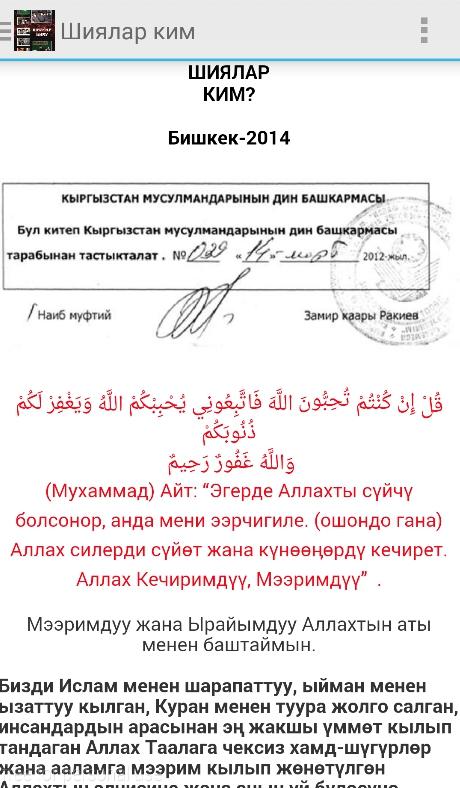 Шиялар ким
ШИЯЛАР
КИМ?
Бишкек-2014
КЫРГЫЗСТАН МУСУЛМАНДАРЫНЫН ДИН БАШКАРМАСЫ
Бул китеп Кыргызстан мусулмандарынын дин башкармасы
тарабынан тастыкталат . №029 «14»- март 2012-жыл.
Наиб муфтий Замир каары Ракиев
قُلْ إِنْ كُنْتُمْ تُحِبُّونَ اللَّهَ فَاتَّبِعُونِي يُحْبِبْكُمُ اللَّهُ وَيَغْفِرْ لَكُمْ
ذُنُوبَكُمْ
وَاللَّهُ غَفُورٌ رَحِيمٌ
(Мухаммад) Айт: “Эгерде Аллахты сүйчү
болсонор, анда мени ээрчигиле. (ошондо гана)
Аллах силерди сүйөт жана күнөөңөрдү кечирет.
Аллах Кечиримдүү, Мээримдүү” .
Мээримдуу жана Ырайымдуу Аллахтын аты
менен баштаймын.
Бизди Ислам менен шарапаттуу, ыйман менен
ызаттуу кылган, Куран менен туура жолго салган,
инсандардын арасынан эң жакшы үммөт кылып
тандаган Аллах Таалага чексиз хамд-шүгүрлөр
жана ааламга мээрим кылып жөнөтүлгөн